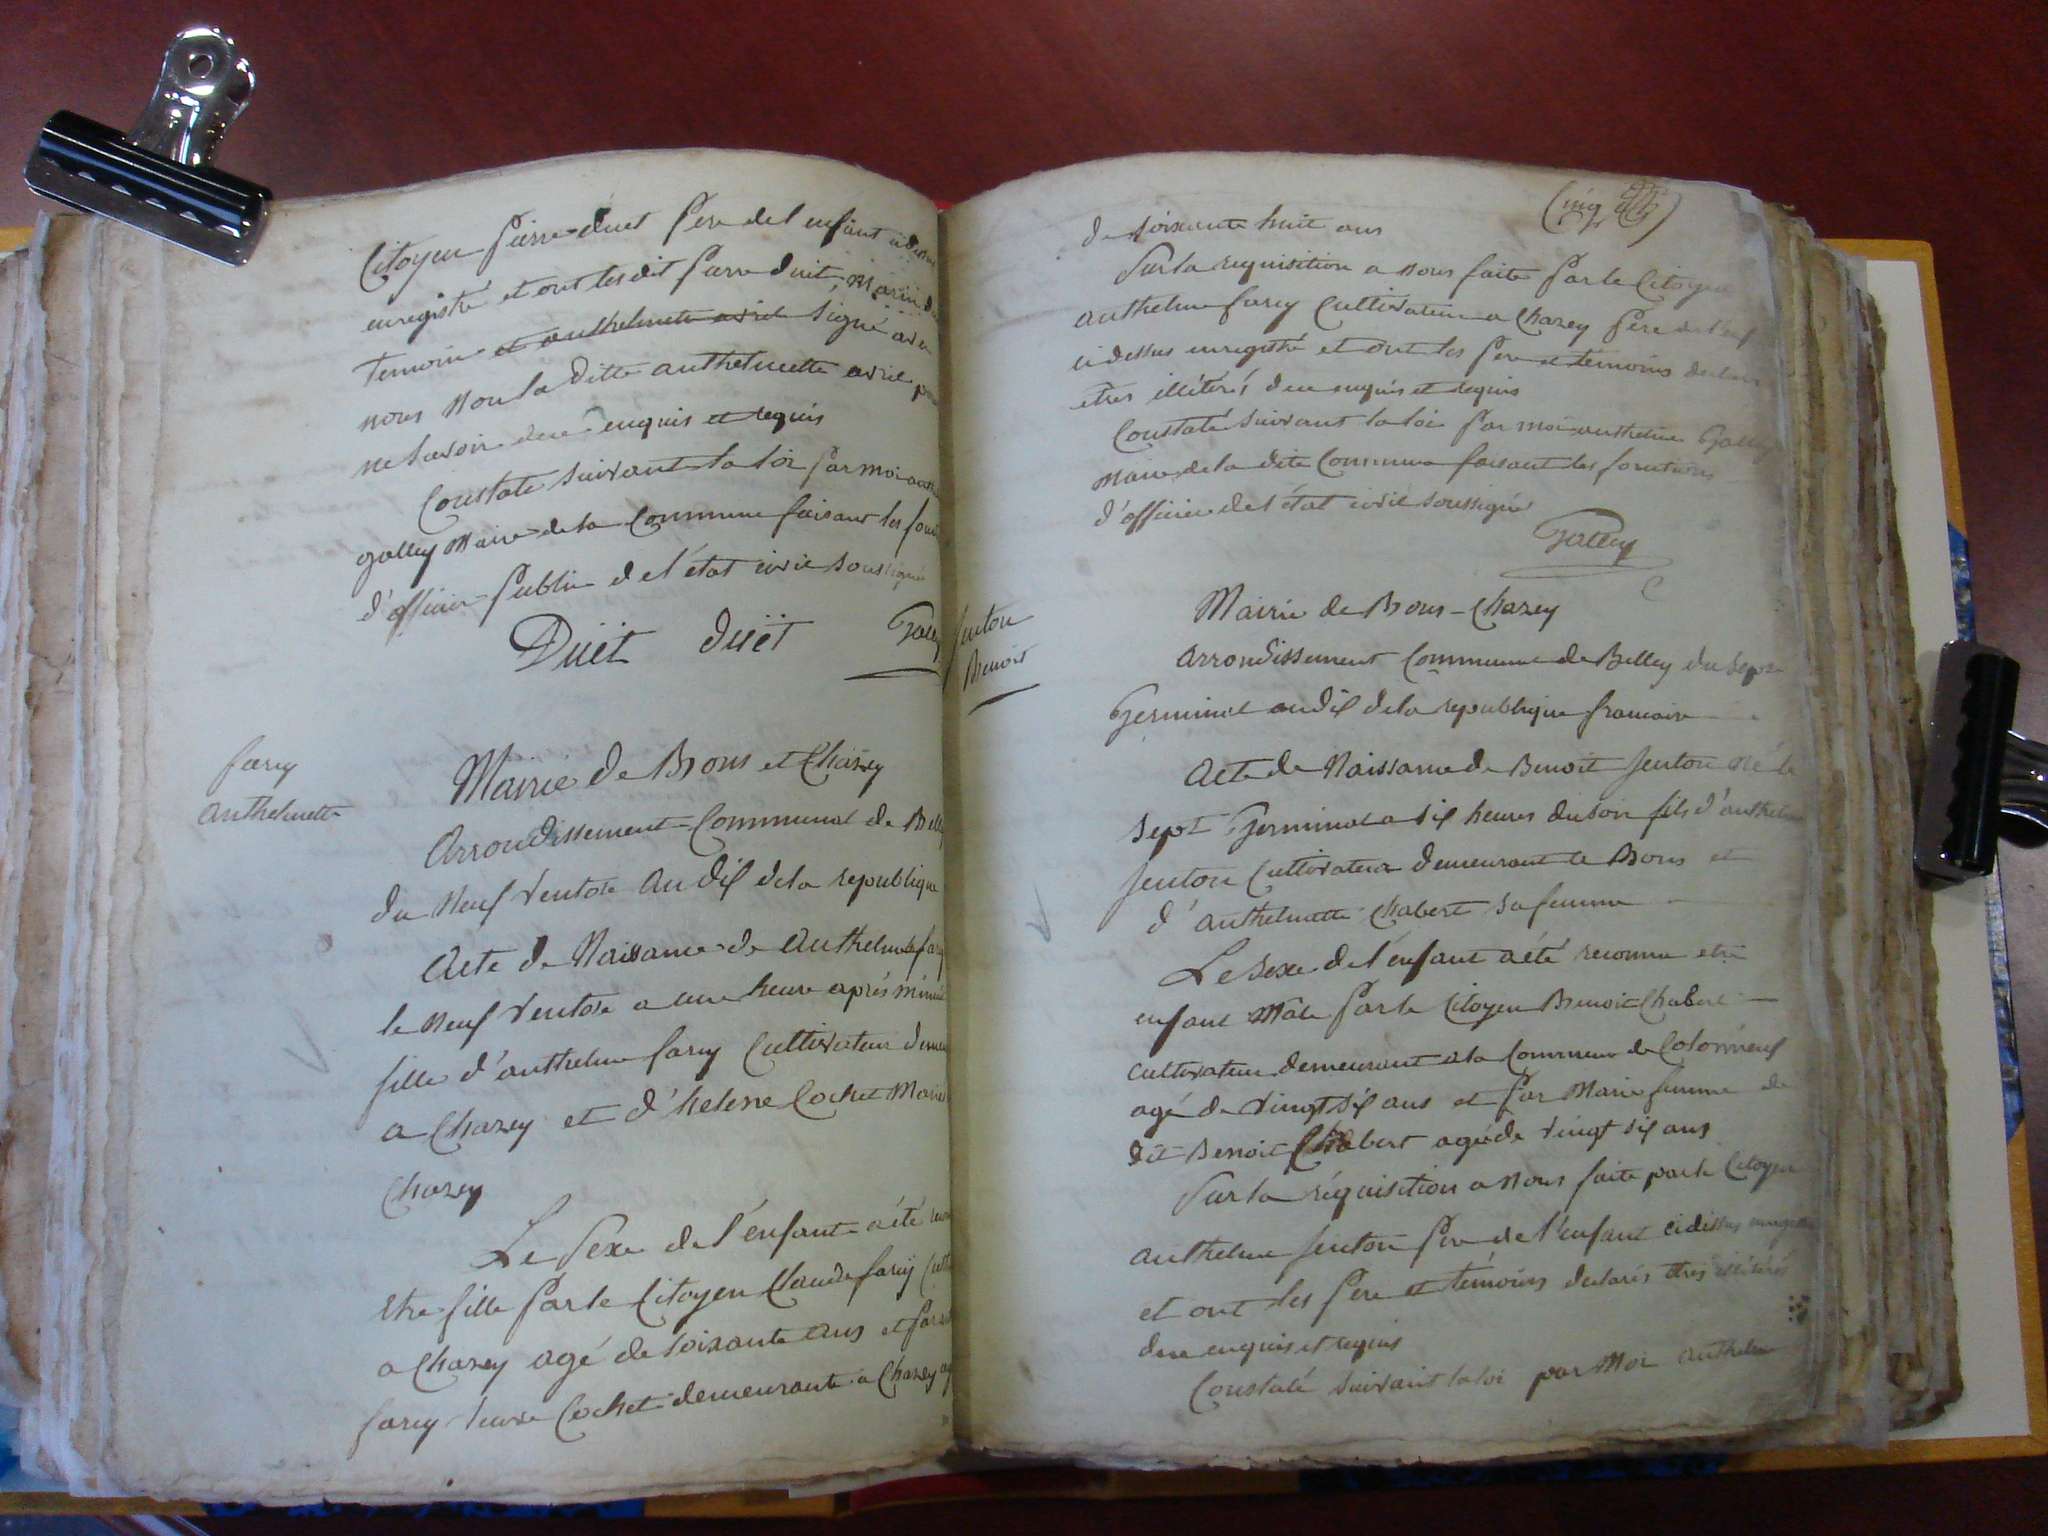 Citoyen pierre duet père de l'enfant ci dessus
enregistré et ont lesdit pierre duet, Marin
temoin et anthelmette avril signé avec
nous non la ditte anthelmette avril pour
ne savoir de ce enquis et requis
Constaté suivant la loi par moi
golley Maire de la Commune faisant les
d'officier public de l'état civil soussigné
Duët duët Golley
farcy
anthelmette
Mairie de Bons et Chazey
Arrondissement Communal de Belley
du Neuf Ventose an dix de la republique
Acte de Naissance de anthelmette farcy
le neuf Ventose a une heure après minuit
fille d'anthelme farcy Cultivateur
a Chazey et d'helene Cochet
Chazey
Le sexe de l'énfant a été
etre fille par le Citoyen Claude farcy
a Chazey agé de soixante ans et par
farcy veuve Cochet demeurante a Chazey
Cinq
de soixante huit ans
Sur la requisition a nous faite par le Citoyen
anthelme farcy Cultivateur a Chazey père de l'enf
ci dessus enregistré et ont les père et témoins
etres illétérés de ce enquis et requis
Constaté suivant la loi par moi anthelme Golley
maire de la dite Commune faisant les fonctions
d'officier de l'état civil soussigné
Golley
Jenton
Benoit
Mairie de Bons - Chazey
Arrondissement Communal de Belley du sept
Germinal an dix de la republique francaise
Acte de Naissance de Benoit Jenton né le
sept Germinal a six heures du soir fils d'anthelme
Jenton Cultivateur demeurant a Bons et
d'anthelmette Chabert sa femme
Le sexe de l'énfant a été reconnu etre
enfant Mâle par le Citoyen Benoit Chabert
cultivateur demeurant a la Commune de Colomieux
agé de vingt six ans et par Marie femme de
dit Benoit Chabert agée de vingt six ans
Sur la réquisition a nous faite par le Citoyen
anthelme Jenton père de l'enfant ci dessus
et ont les père et témoins declarés etres illétérés
de ce enquis et requis
Constaté suivant la loi par Moi anthelme